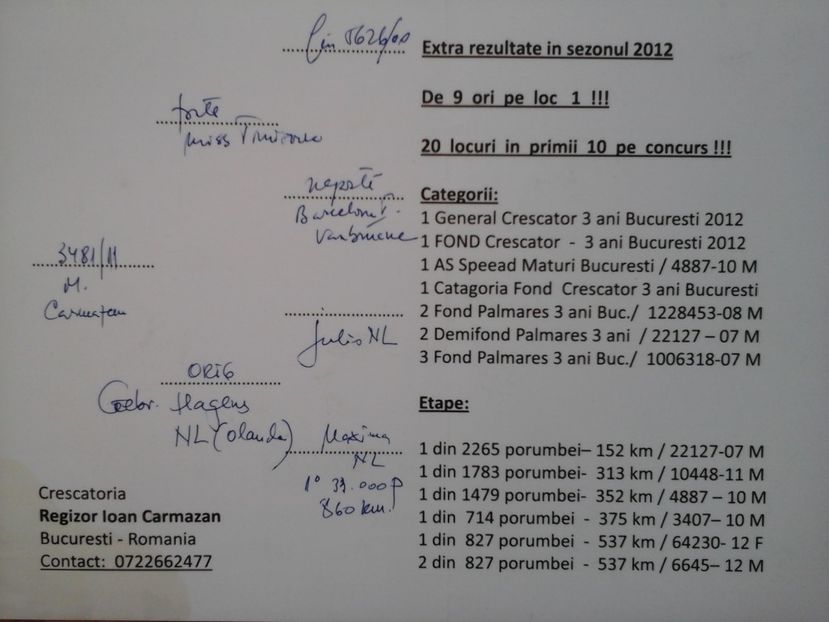 fin 5626/00
forte
miss Timisoara
nepotă
Barcelona
Vanbruene
3481/11
M.
Carmazan
Julio NL
ORIG
Gebr. Hagens
NL (Olanda)
Maxima
NL
1° 33.000 P
860 km.
Crescatoria
Regizor Ioan Carmazan
Bucuresti - Romania
Contact: 0722662477
Extra rezultate in sezonul 2012
De 9 ori pe loc 1 !!!
20 locuri in primii 10 pe concurs !!!
Categorii:
1 General Crescator 3 ani Bucuresti 2012
1 FOND Crescator - 3 ani Bucuresti 2012
1 AS Speead Maturi Bucuresti / 4887-10 M
1 Catagoria Fond Crescator 3 ani Bucuresti
2 Fond Palmares 3 ani Buc./ 1228453-08 M
2 Demifond Palmares 3 ani / 22127 – 07 M
3 Fond Palmares 3 ani Buc./ 1006318-07 M
Etape:
1 din 2265 porumbei– 152 km / 22127-07 M
1 din 1783 porumbei- 313 km / 10448-11 M
1 din 1479 porumbei- 352 km / 4887 – 10 M
1 din 714 porumbei - 375 km / 3407– 10 M
1 din 827 porumbei - 537 km / 64230- 12 F
2 din 827 porumbei - 537 km / 6645– 12 M